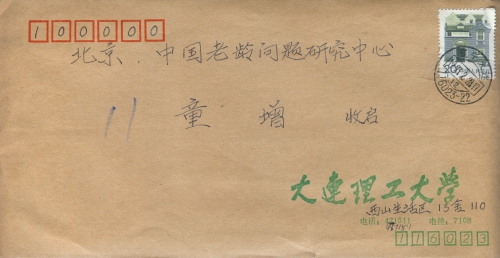 100000
北京．中国老龄问题研究中心
童增 收启
大连理工大学
西山生活区 13舍 110
电话：471511 电挂：7108
116023
116023-22